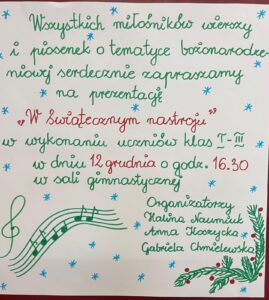 Wszystkich miłośników wierszy
i piosenek o tematyce bożonarodze-
niowej serdecznie zapraszamy
na prezentację
„W świątecznym nastroju”
w wykonaniu uczniów klas I-III
w dniu 12 grudnia o godz. 16.30
w sali gimnastycznej
Organizatorzy
Halina Naumiuk
Anna
Gabriela Chmielewska